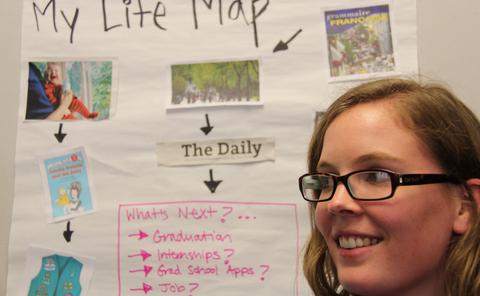 My Life Map
grammaire
FRANÇAISE
The Daily
What's Next?...
Graduation
Internships?
Grad School Apps?
Job?